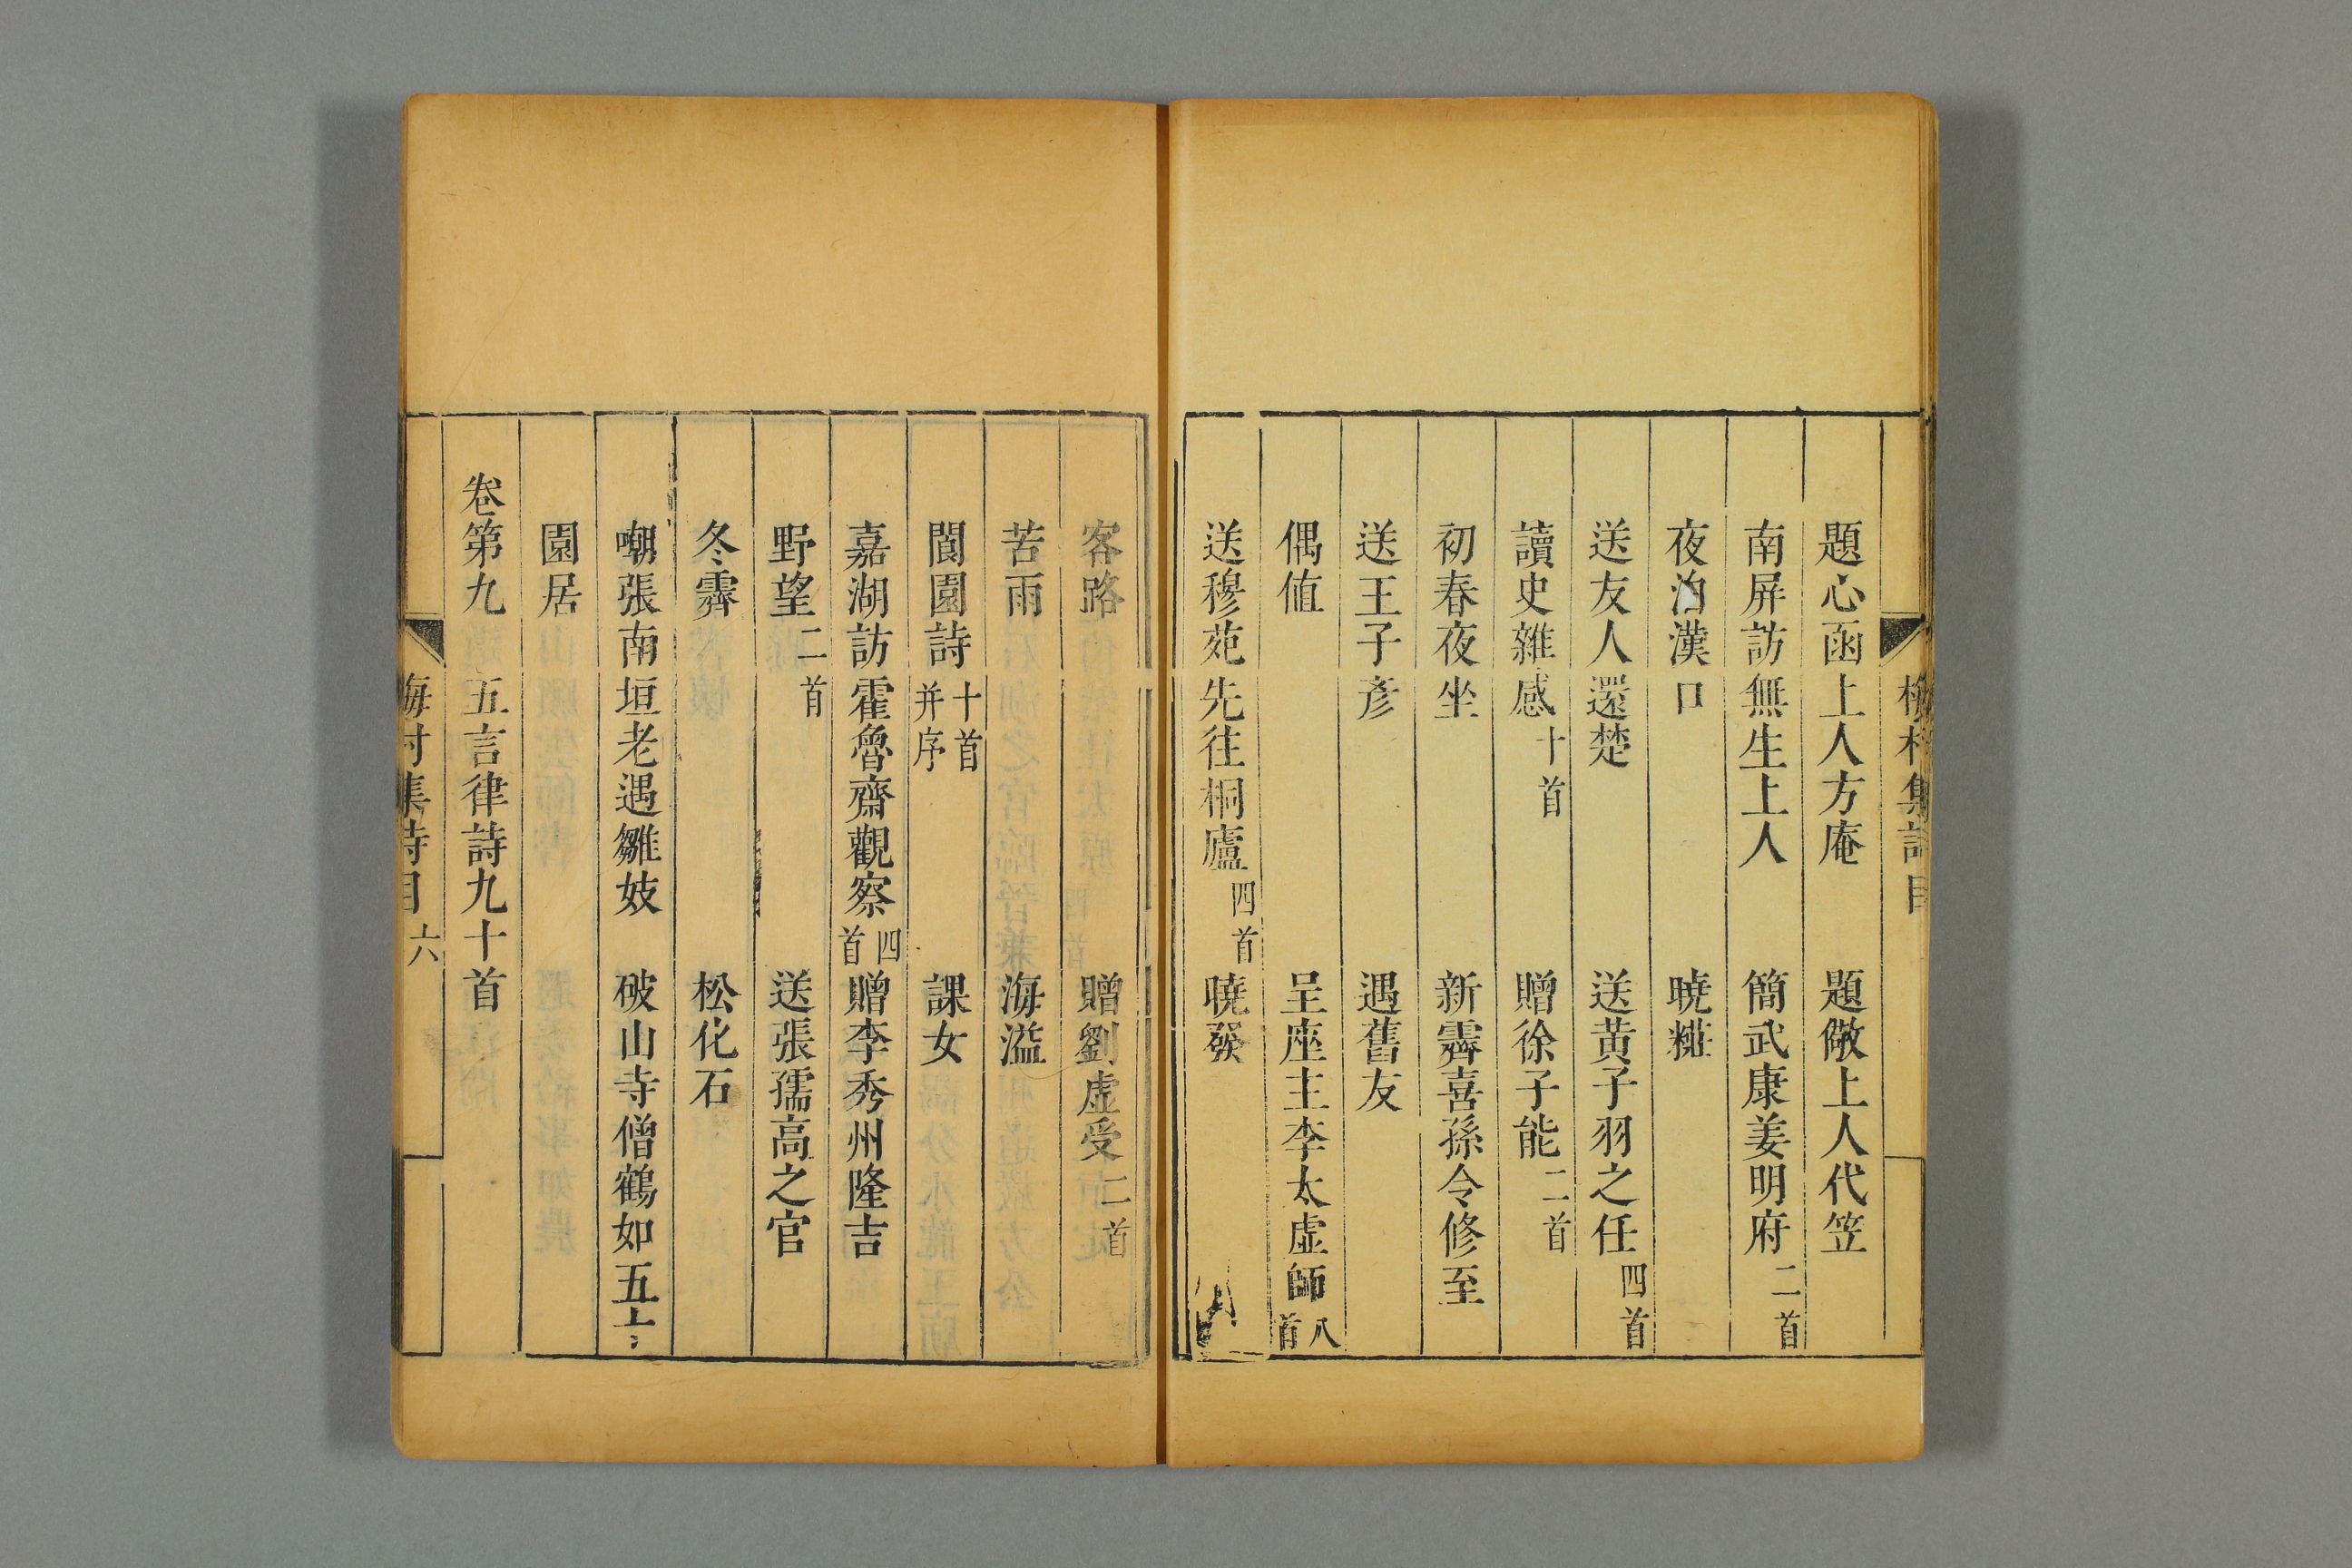 梅村集詩目
題心函上人方庵　題儆上人代笠
南屏訪無生上人　簡武康姜明府二首
夜泊漢口　曉糚
送友人還楚　送黄子羽之任四首
讀史雜感十首　贈徐子能二首
初春夜坐　新霽喜孫令修至
送王子彥　遇舊友
偶值　呈座主李太虛師八首
送穆苑先往桐廬四首　曉發
客路　贈劉虛受二首
苦雨　海溢
閬園詩十首并序　課女
嘉湖訪霍魯齋觀察四首　贈李秀州隆吉
野望二首　送張孺高之官
冬霽　松化石
嘲張南垣老遇雛妓　破山寺僧鶴如五十
園居
卷第九　五言律詩九十首
梅村集詩目　六